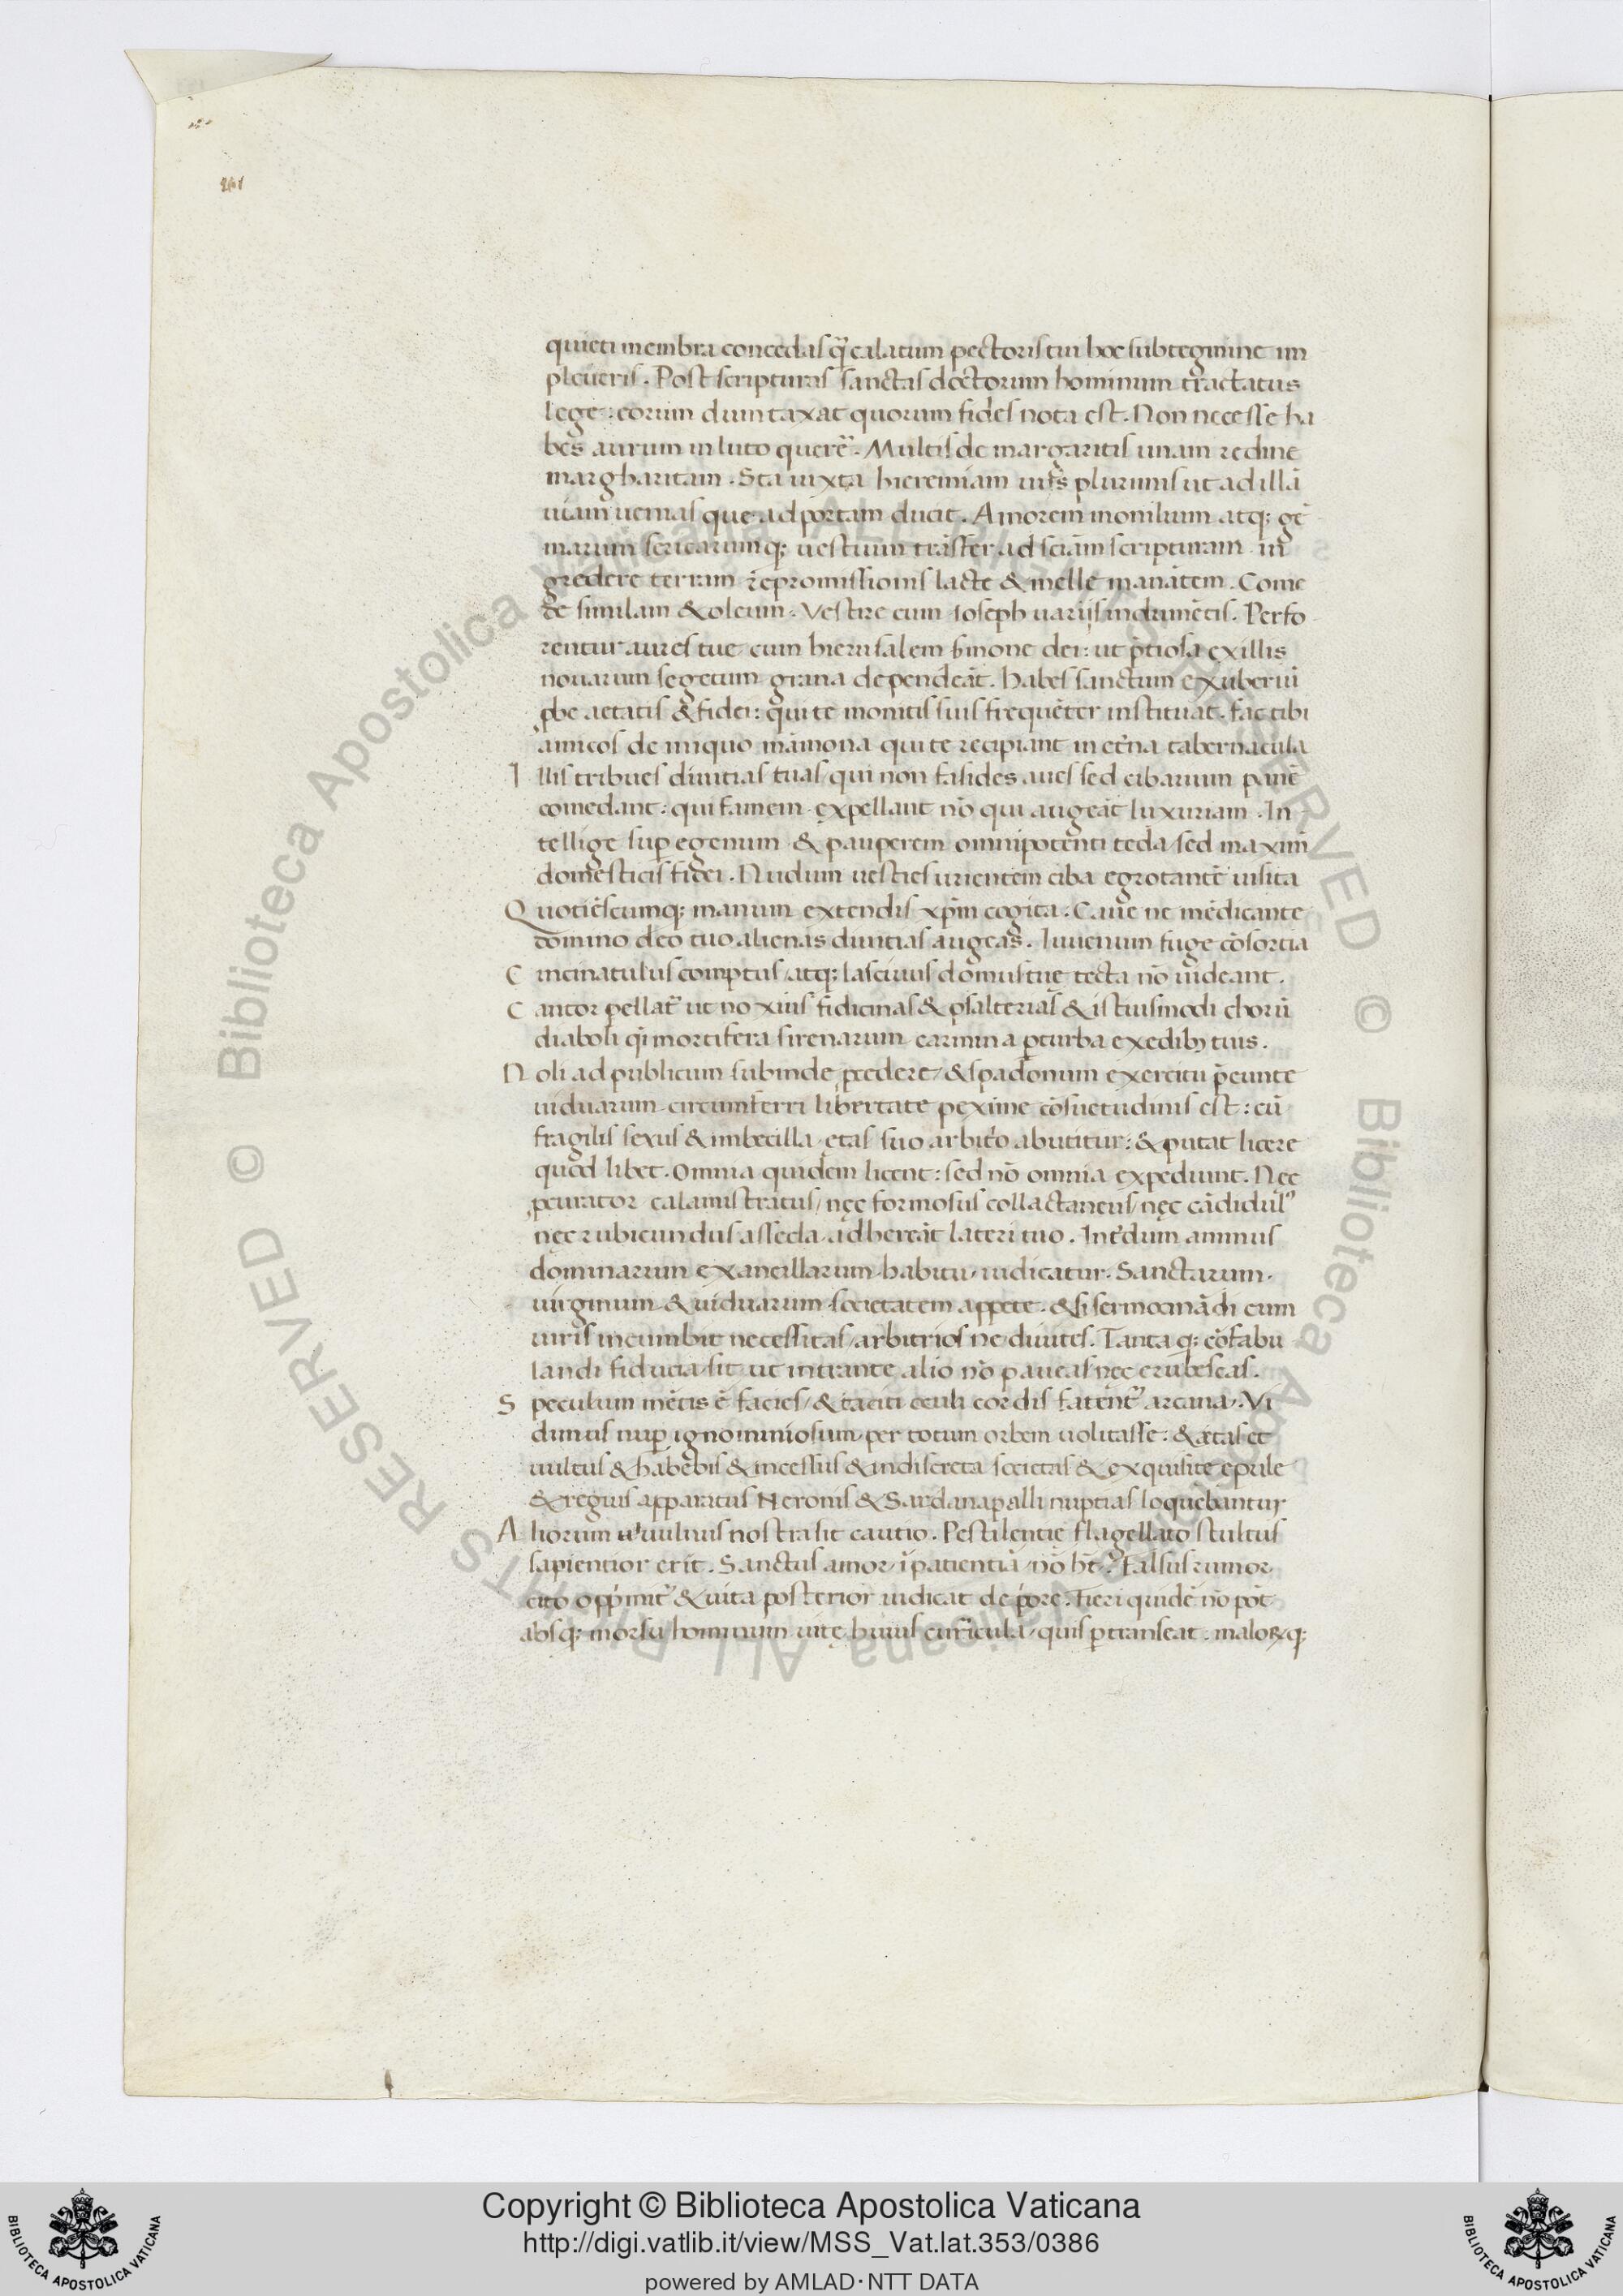 quieti membra concedas q̃ calatum pectoris tui hoc subtegmine im
pleueris. Post scripturas sanctas doctorum hominum tractatus
lege: eorum dumtaxat quorum fides nota est. Non necesse ha
bes aurum in luto querẽ. Multis de margaritis unam redime
margharitam. Sta iuxta hieremiam uijs plurimis ut ad illã
uiam uenias que ad portam ducit. Amorem monilium atq; gẽ
marum sericarumq; uestium trãsfer ad sciãm scripturam. in
gredere terram repromissionis lacte & melle manãtem. Come
de similam & oleum. Vestire cum ioseph uarijs indumẽtis. Perfo
rentur aures tue cum hierusalem s̃mone dei: ut p̃tiosa ex illis
nouarum segetum grana dependeãt. habes sanctum exuberiũ
ꝓbe aetatis & fidei: qui te monitis suis frequẽter instituat. fac tibi
amicos de iniquo mãmona qui te recipiant in et̃na tabernacula
Illis tribues diuitias tuas qui non fasides aues sed cibarium panẽ
comedant: qui famem expellant nõ qui augeãt luxuriam. In
tellige sup egenum & pauperem omnipotenti teda sed maxim̃
domesticis fidei. Nudum uesties urientem ciba egrotantẽ uisita
Quotiẽscumq; manum extendis xp̃m cogita. Caue ne mẽdicante
domino deo tuo alienas diuitias augeas. Iuuenum fuge cõsortia
Cincinatulus comptus atq; lasciuus domus tuę tecta nõ uideant.
Cantor pellat᷑ ut noxius fidicinas & psalterias & istiusmodi chorũ
diaboli q̃i mortifera sirenarum carmina ꝑturba ex edibꝫ tuis.
Noli ad publicum subinde ꝓcedere & spadonum exercitu p̃eunte
uiduarum circumferri libertate pexime cõsuetudinis est: cũ
fragilis sexus & imbecilla ętas suo arbit̃o abutitur: & putat licere
quod libet. Omnia quidem licent: sed nõ omnia expediunt. Nec
ꝓcurator calamistratus / nęc formosus collactaneus / nęc cãdidul᷒
nęc rubicundus asseda adhereãt lateri tuo. Int̃dum animus
dominarum ex ancillarum habitu iudicatur. Sanctarum
uirginum & uiduarum societatem appete. & si sermocinãdi cum
uiris incumbit necessitas arbitrios ne diuites. Tanta q; cõfabu
landi fiducia sit ut intrante alio nõ paueas nęc erubescas.
Speculum mẽtis ẽ facies / & taciti oculi cordis fatent᷑ arcana. Vi
dimus nup ignominiosum per totum orbem uolitasse: & ætas et
uultus & habebis & incessus & indiscreta societas & exquisite epule
& regius apparatus Neronis & Sardanapalli nuptias loquebantur
Aliorum uulnus nostra sit cautio. Pestilentię flagellato stultus
sapientior erit. Sanctus amor ĩpatientiã nõ hꝫ. Falsus rumor
cito opp̃mit᷑ & uita posterior iudicat de p̃ore. Fieri quidẽ nõ põt
absq; morsu hominum uitę huius curricula quis ꝑtranseat. maloꝝq;
Copyright © Biblioteca Apostolica Vaticana
http://digi.vatlib.it/view/MSS_Vat.lat.353/0386
powered by AMLAD·NTT DATA